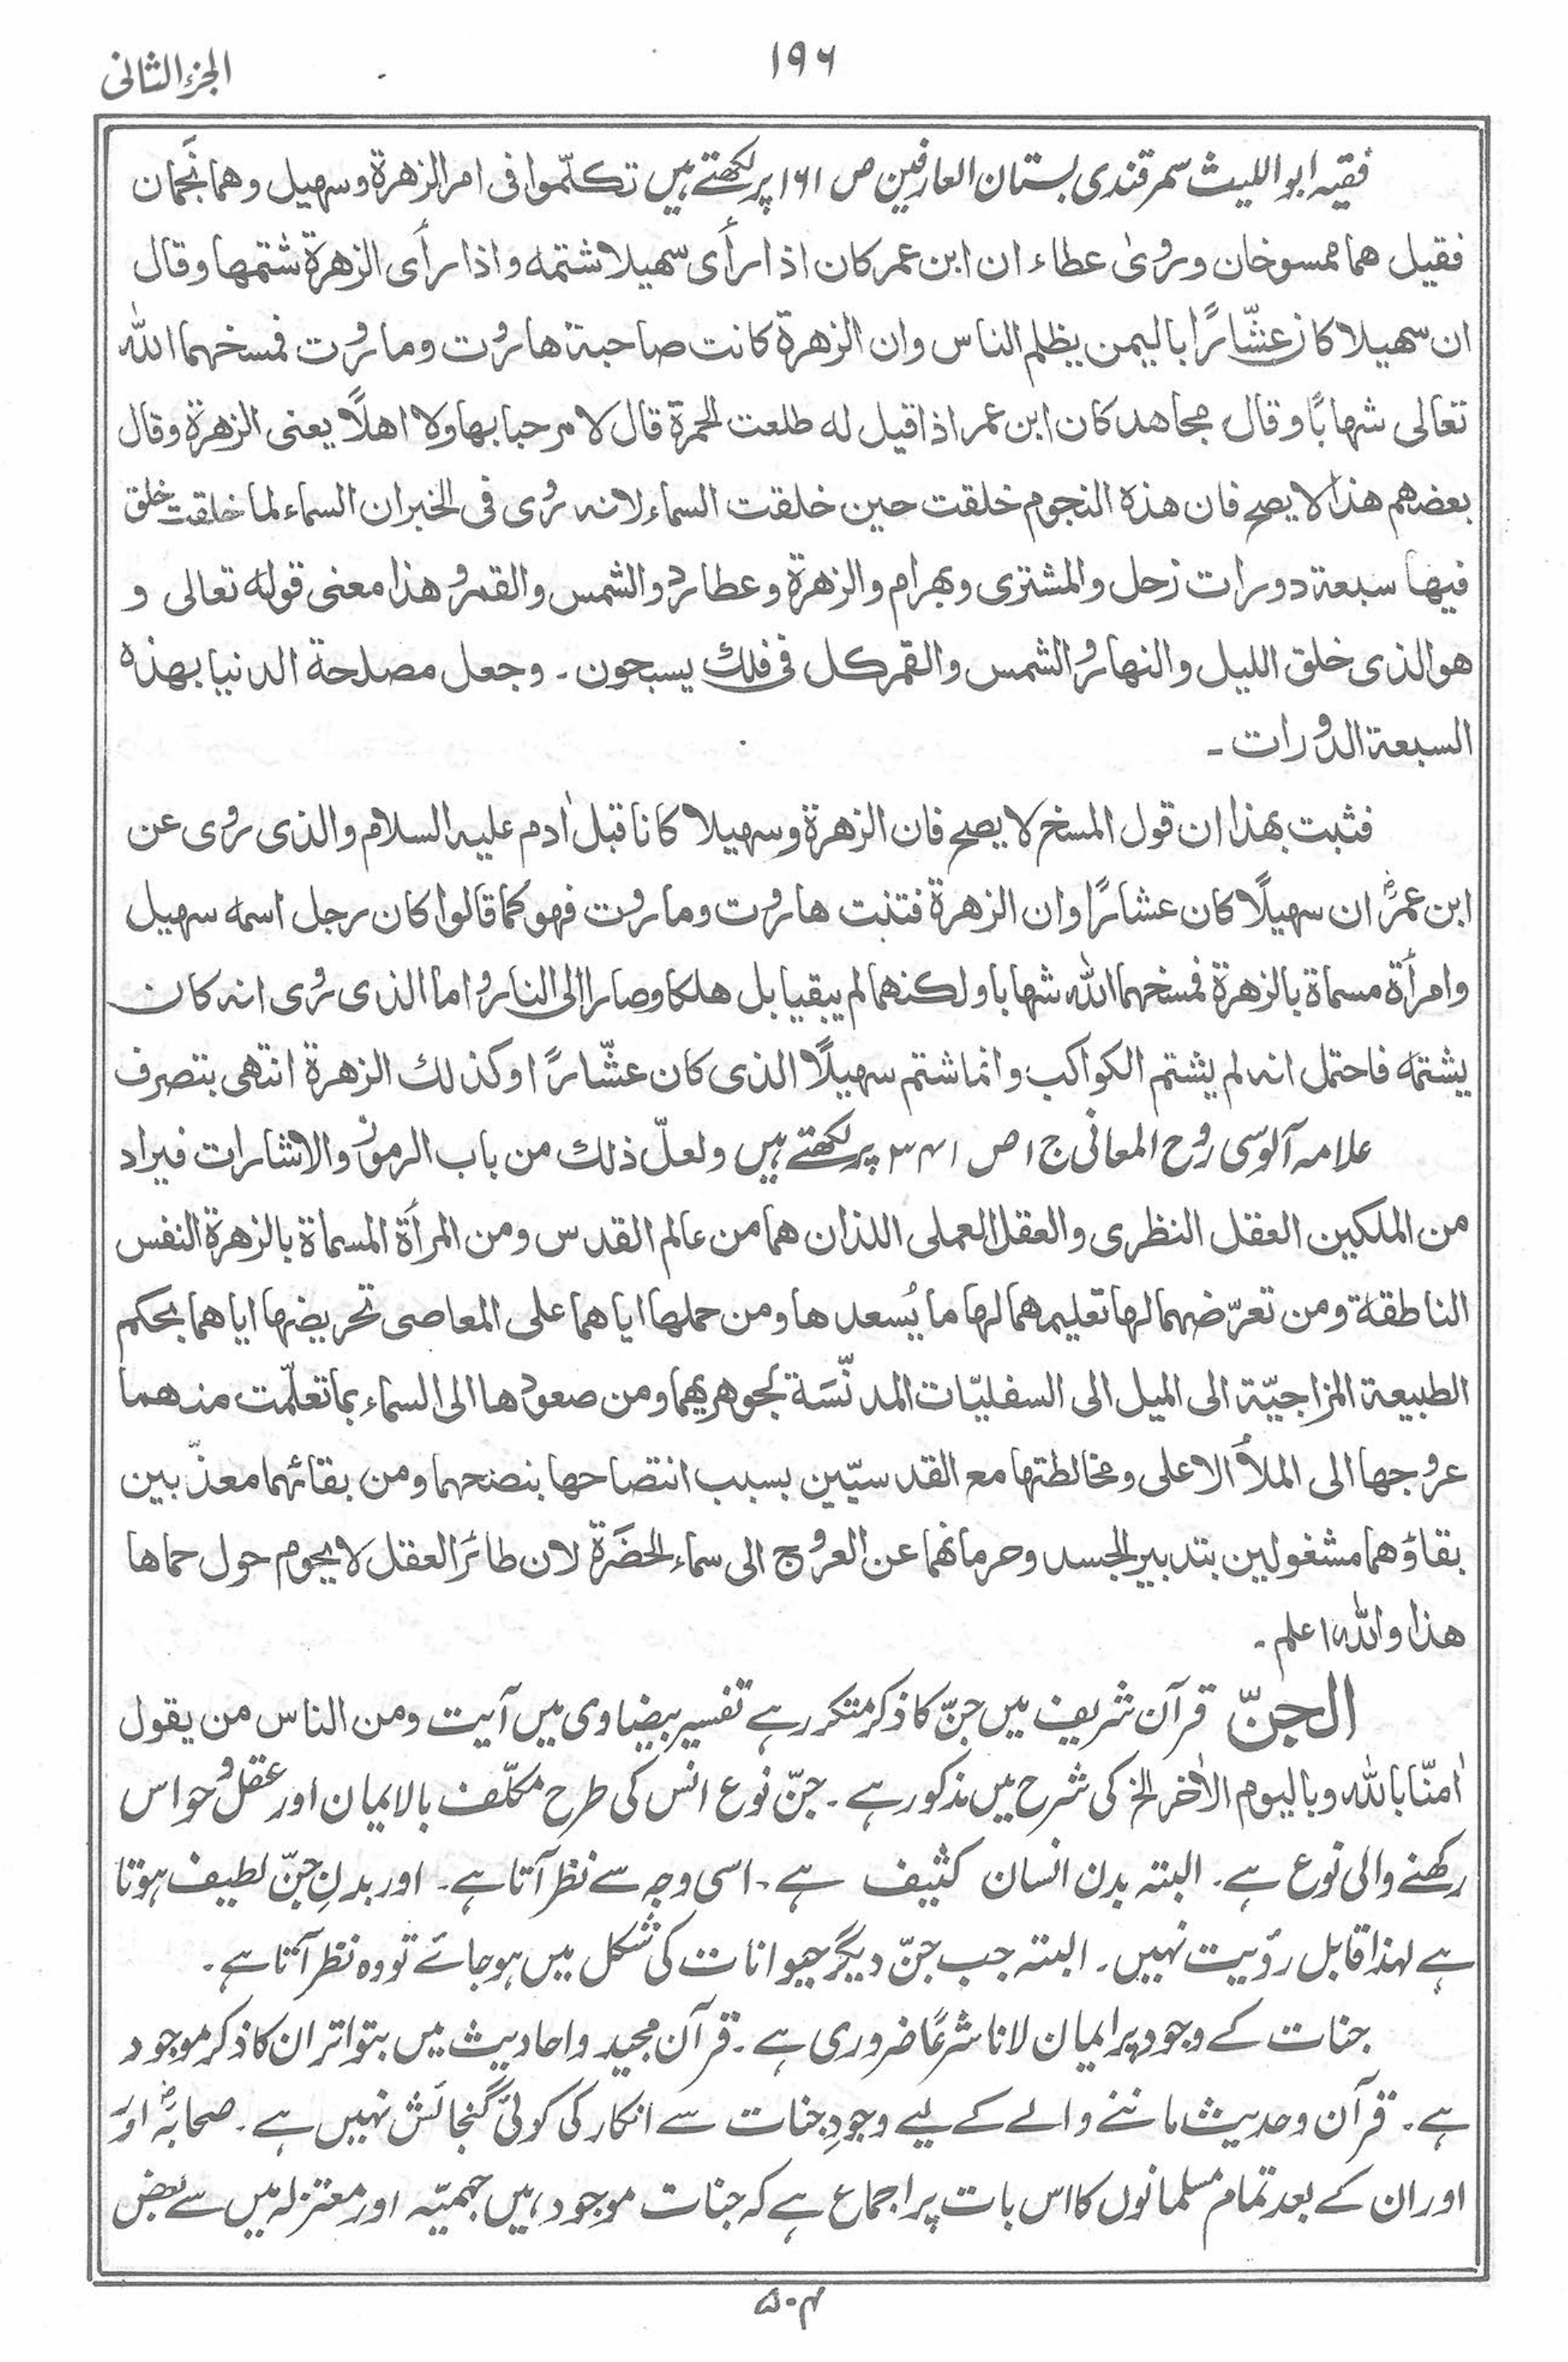 ۱۹۶
الجزء الثانی
فقیہ ابواللیث سمرقندی بستان العارفین ص ۱۶۱ پر لکھتے ہیں تکلّموا فی امر الزهرة وسهیل وهما نَجمان
فقیل هما ممسوخان وروی عطاء ان ابن عمر کان اذا رأی سهیلا شتمه واذا رأی الزهرة شتمها وقال
ان سهیلا کان عشّارًا بالیمن یظلم الناس وان الزهرة کانت صاحبة هاروت وماروت فمسخهما اللہ
تعالی شهابًا وقال مجاهد کان ابن عمر اذا قیل له طلعت الحمرة قال لا مرحبا بها ولا اهلًا یعنی الزهرة وقال
بعضهم هذا لا یصح فان هذه النجوم خلقت حین خلقت السماء لانه روی فی الخبر ان السماء لما خلقت خلق
فیها سبعة دورات زحل والمشتری وبهرام والزهرة وعطارد والشمس والقمر وهذا معنی قوله تعالی و
هو الذی خلق اللیل والنهار والشمس والقمر کل فی فلك یسبحون ۔ وجعل مصلحة الدنیا بهذه
السبعة الدورات ۔
فثبت بهذا ان قول المسخ لا یصح فان الزهرة وسهیلا کانا قبل اٰدم علیه السلام والذی روی عن
ابن عمرؓ ان سهیلًا کان عشارًا وان الزهرة فتنت هاروت وماروت فهو کما قالوا کان رجل اسمه سهیل
وامرأة مسماة بالزهرة فمسخهما اللہ شهابا ولکنهما لم یبقیا بل هلکا وصارا الی النار واما الذی روی انه کان
یشتمه فاحتمل انه لم یشتم الکواکب وانما شتم سهیلًا الذی کان عشّارًا وکذلك الزهرة انتهی بتصرف
علامہ آلوسی روح المعانی ج ۱ ص ۳۴۱ پر لکھتے ہیں ولعلّ ذلك من باب الرموز والاشارات فیراد
من الملکین العقل النظری والعقل العملی اللذان هما من عالم القدس ومن المرأة المسماة بالزهرة النفس
الناطقة ومن تعرّضهما لها تعلیمهما لها ما یُسعدها ومن حملها ایاهما علی المعاصی تحریضها ایاهما بحکم
الطبیعة المزاجیّة الی المیل الی السفلیّات المدنّسَة لجوهریهما ومن صعودها الی السماء بما تعلّمت منهما
عروجها الی الملأ الاعلی ومخالطتها مع القدسیّین بسبب انتصاحها بنصحهما ومن بقائهما معذّبین
بقاؤهما مشغولین بتدبیر الجسد وحرمانهما عن العروج الی سماء الحضَرة لان طائر العقل لا یحوم حول حماها
هذا واللہ اعلم ۔
الجنّ قرآن شریف میں جنّ کا ذکر متکرر ہے تفسیر بیضاوی میں آیت ومن الناس من یقول
اٰمنّا باللہ وبالیوم الاٰخر الخ کی شرح میں مذکور ہے ۔ جنّ نوع انس کی طرح مکلّف بالایمان اور عقل و حواس
رکھنے والی نوع ہے ۔ البتہ بدن انسان کثیف ہے ۔ اسی وجہ سے نظر آتا ہے ۔ اور بدنِ جنّ لطیف ہوتا
ہے لہذا قابل رؤیت نہیں ۔ البتہ جب جنّ دیگر حیوانات کی شکل میں ہو جائے تو وہ نظر آتا ہے ۔
جنات کے وجود پر ایمان لانا شرعًا ضروری ہے ۔ قرآن مجید و احادیث میں بتواتر ان کا ذکر موجود
ہے ۔ قرآن و حدیث ماننے والے کے لیے وجودِ جنات سے انکار کی کوئی گنجائش نہیں ہے ۔ صحابہؓ اور
اور ان کے بعد تمام مسلمانوں کا اس بات پر اجماع ہے کہ جنات موجود ہیں جہمیّہ اور معتزلہ میں سے بعض